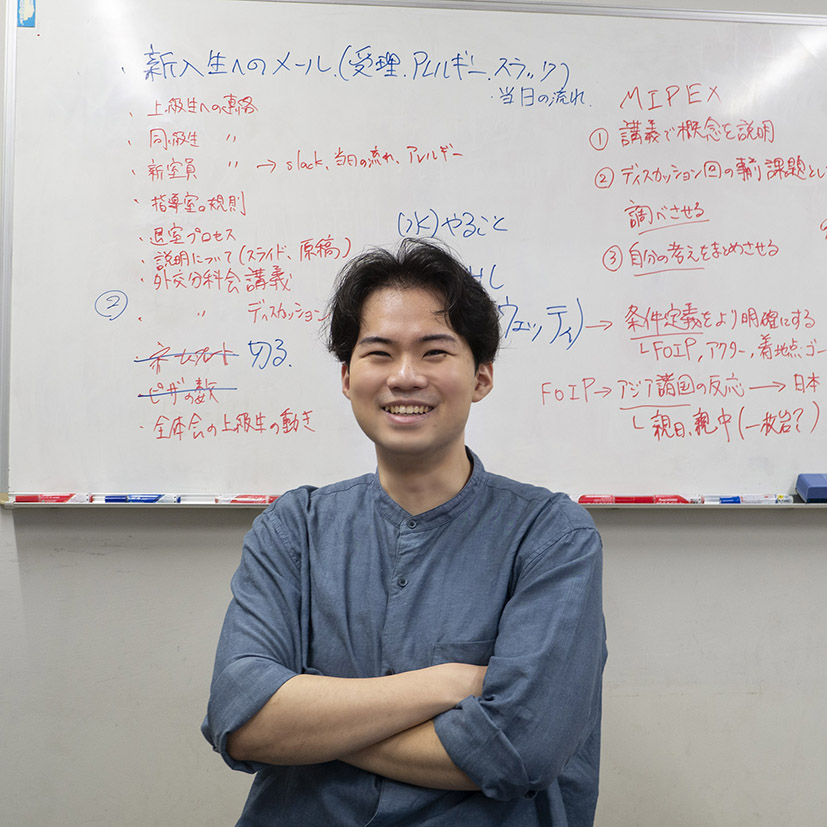 ・新入生へのメール.(受理.アレルギー.スラック)
・当日の流れ.
・上級生への連絡
・同級生 〃
・新室員 〃 → slack、当日の流れ、アレルギー
・指導室の規則
・退室プロセス
・説明について(スライド、原稿)
・外交分科会講義
②
・ 〃 ディスカッション
・ネームプレート 切る.
・ピザの数
・全体会の上級生の動き
(水)やること
ウェッティ)→ 条件定義をより明確にする
└FOIP,アクター,着地点ゴー
FOIP→アジア諸国の反応 → 日本
└親日、親中(一枚岩?)
MIPEX
① 講義で概念を説明
② ディスカッション回の事前課題とし
調べさせる
③ 自分の考えをまとめさせる